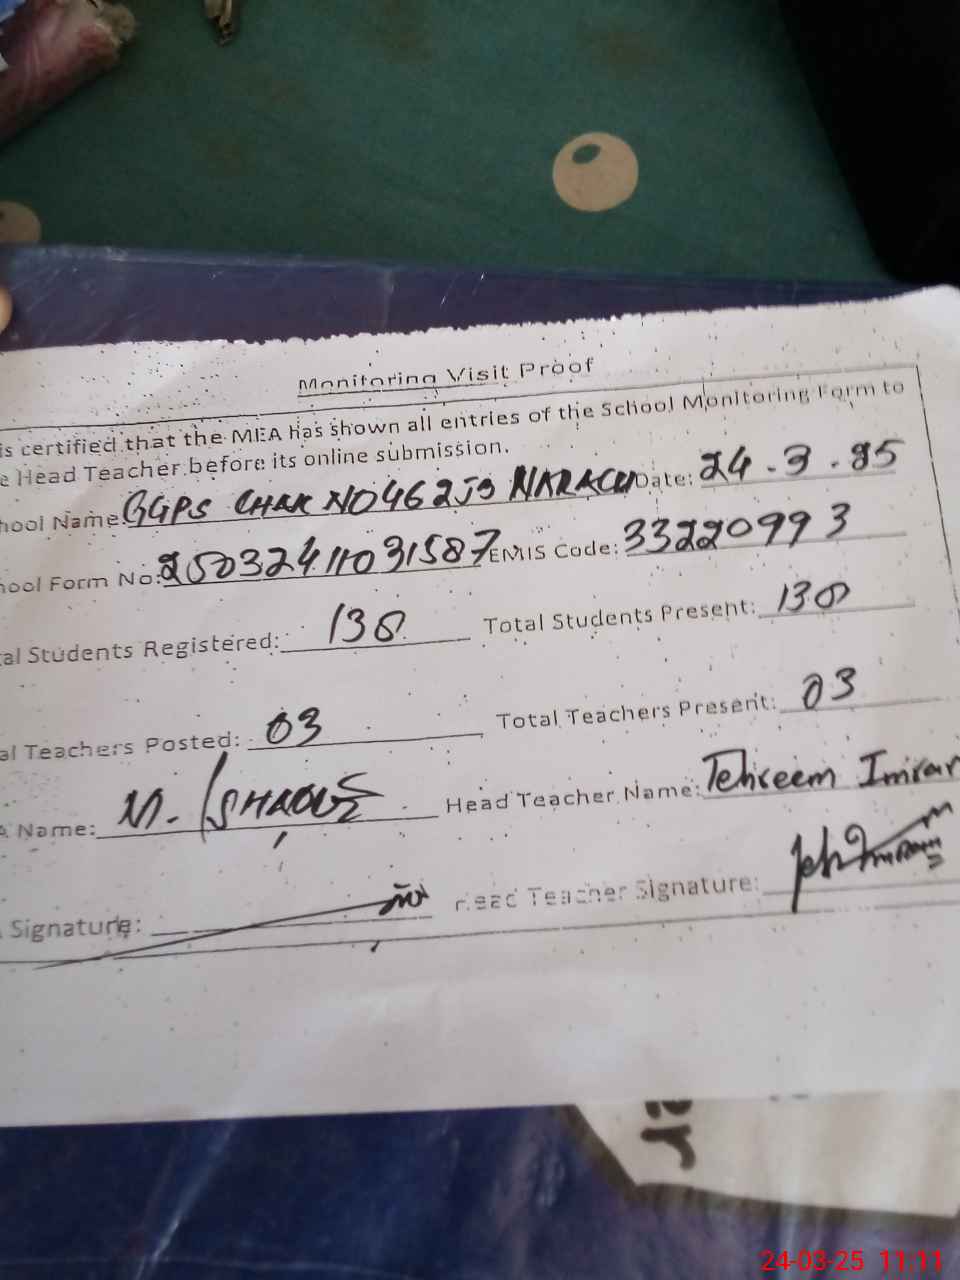 Monitoring Visit Proof
is certified that the MEA has shown all entries of the School Monitoring Form to
e Head Teacher before its online submission.
hool Name: GGPS CHAK NO 462 JB Date: 24-3-25
hool Form No: 25032411031587 EMIS Code: 33220993
al Students Registered: 130 Total Students Present: 130
al Teachers Posted: 03 Total Teachers Present: 03
A Name: M. Head Teacher Name: Tehreem Imran
Signature: Head Teacher Signature:
er
24-03-25 11:11